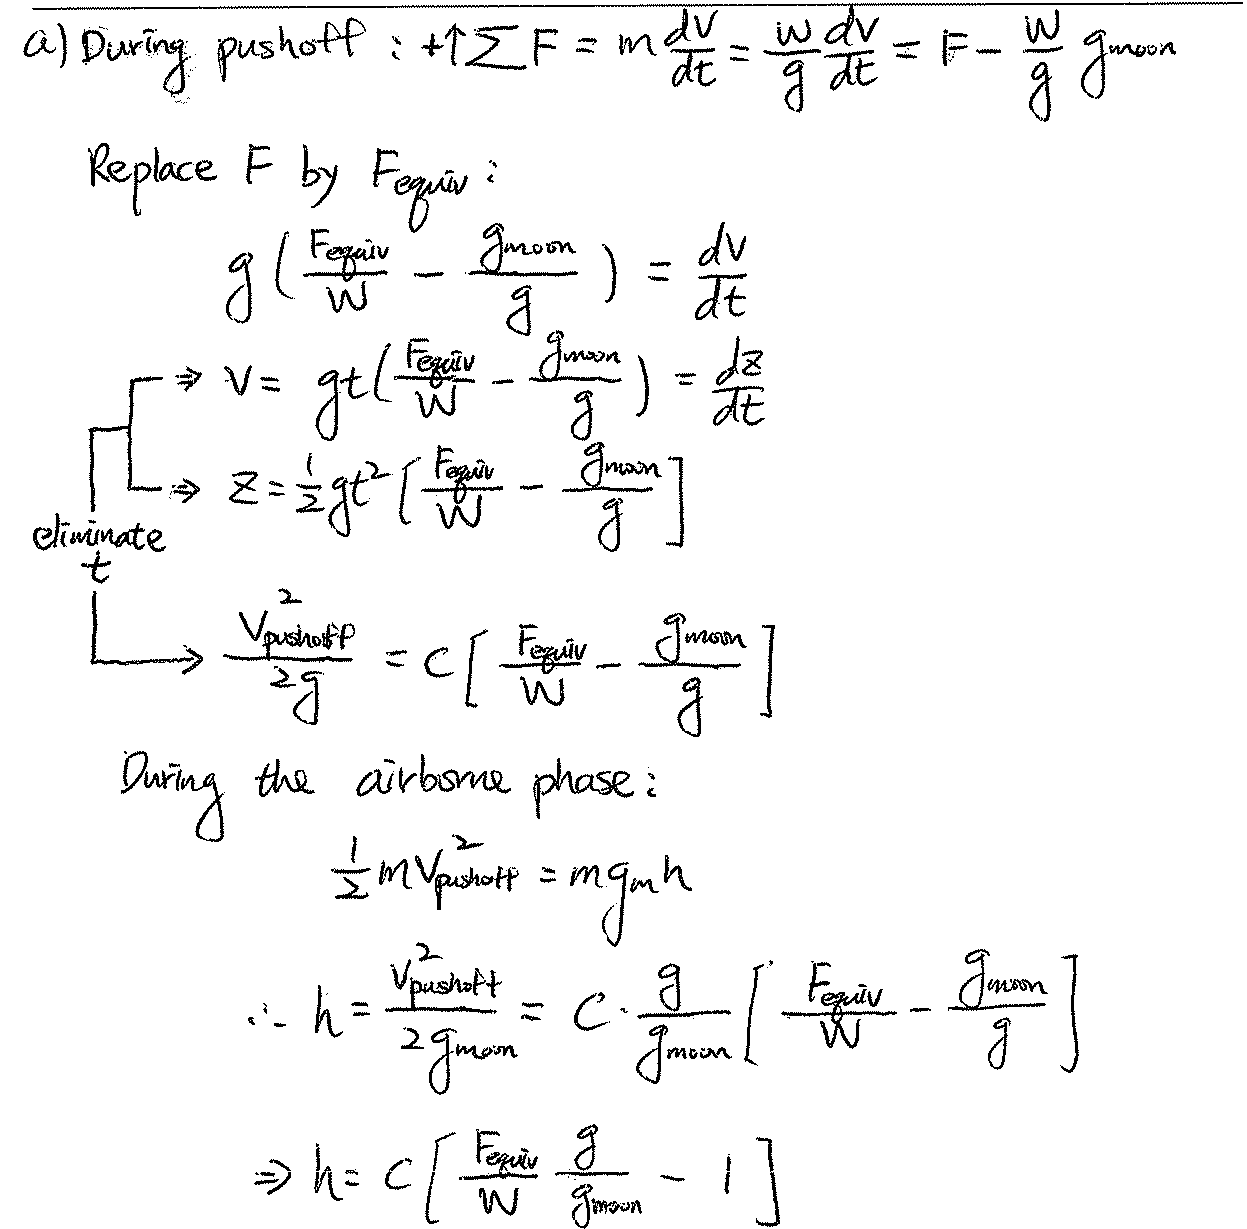 a) During pushoff : +↑ ∑ F = m dV/dt = W/g dV/dt = F - W/g g_moon
Replace F by F_equiv :
g ( F_equiv/W - g_moon/g ) = dV/dt
⇒ V = gt ( F_equiv/W - g_moon/g ) = dz/dt
⇒ z = 1/2 gt² [ F_equiv/W - g_moon/g ]
eliminate
t
→ V²_pushoff/2g = C [ F_equiv/W - g_moon/g ]
During the airborne phase :
1/2 m V²_pushoff = m g_m h
∴ h = V²_pushoff/2g_moon = C · g/g_moon [ F_equiv/W - g_moon/g ]
⇒ h = C [ F_equiv/W g/g_moon - 1 ]